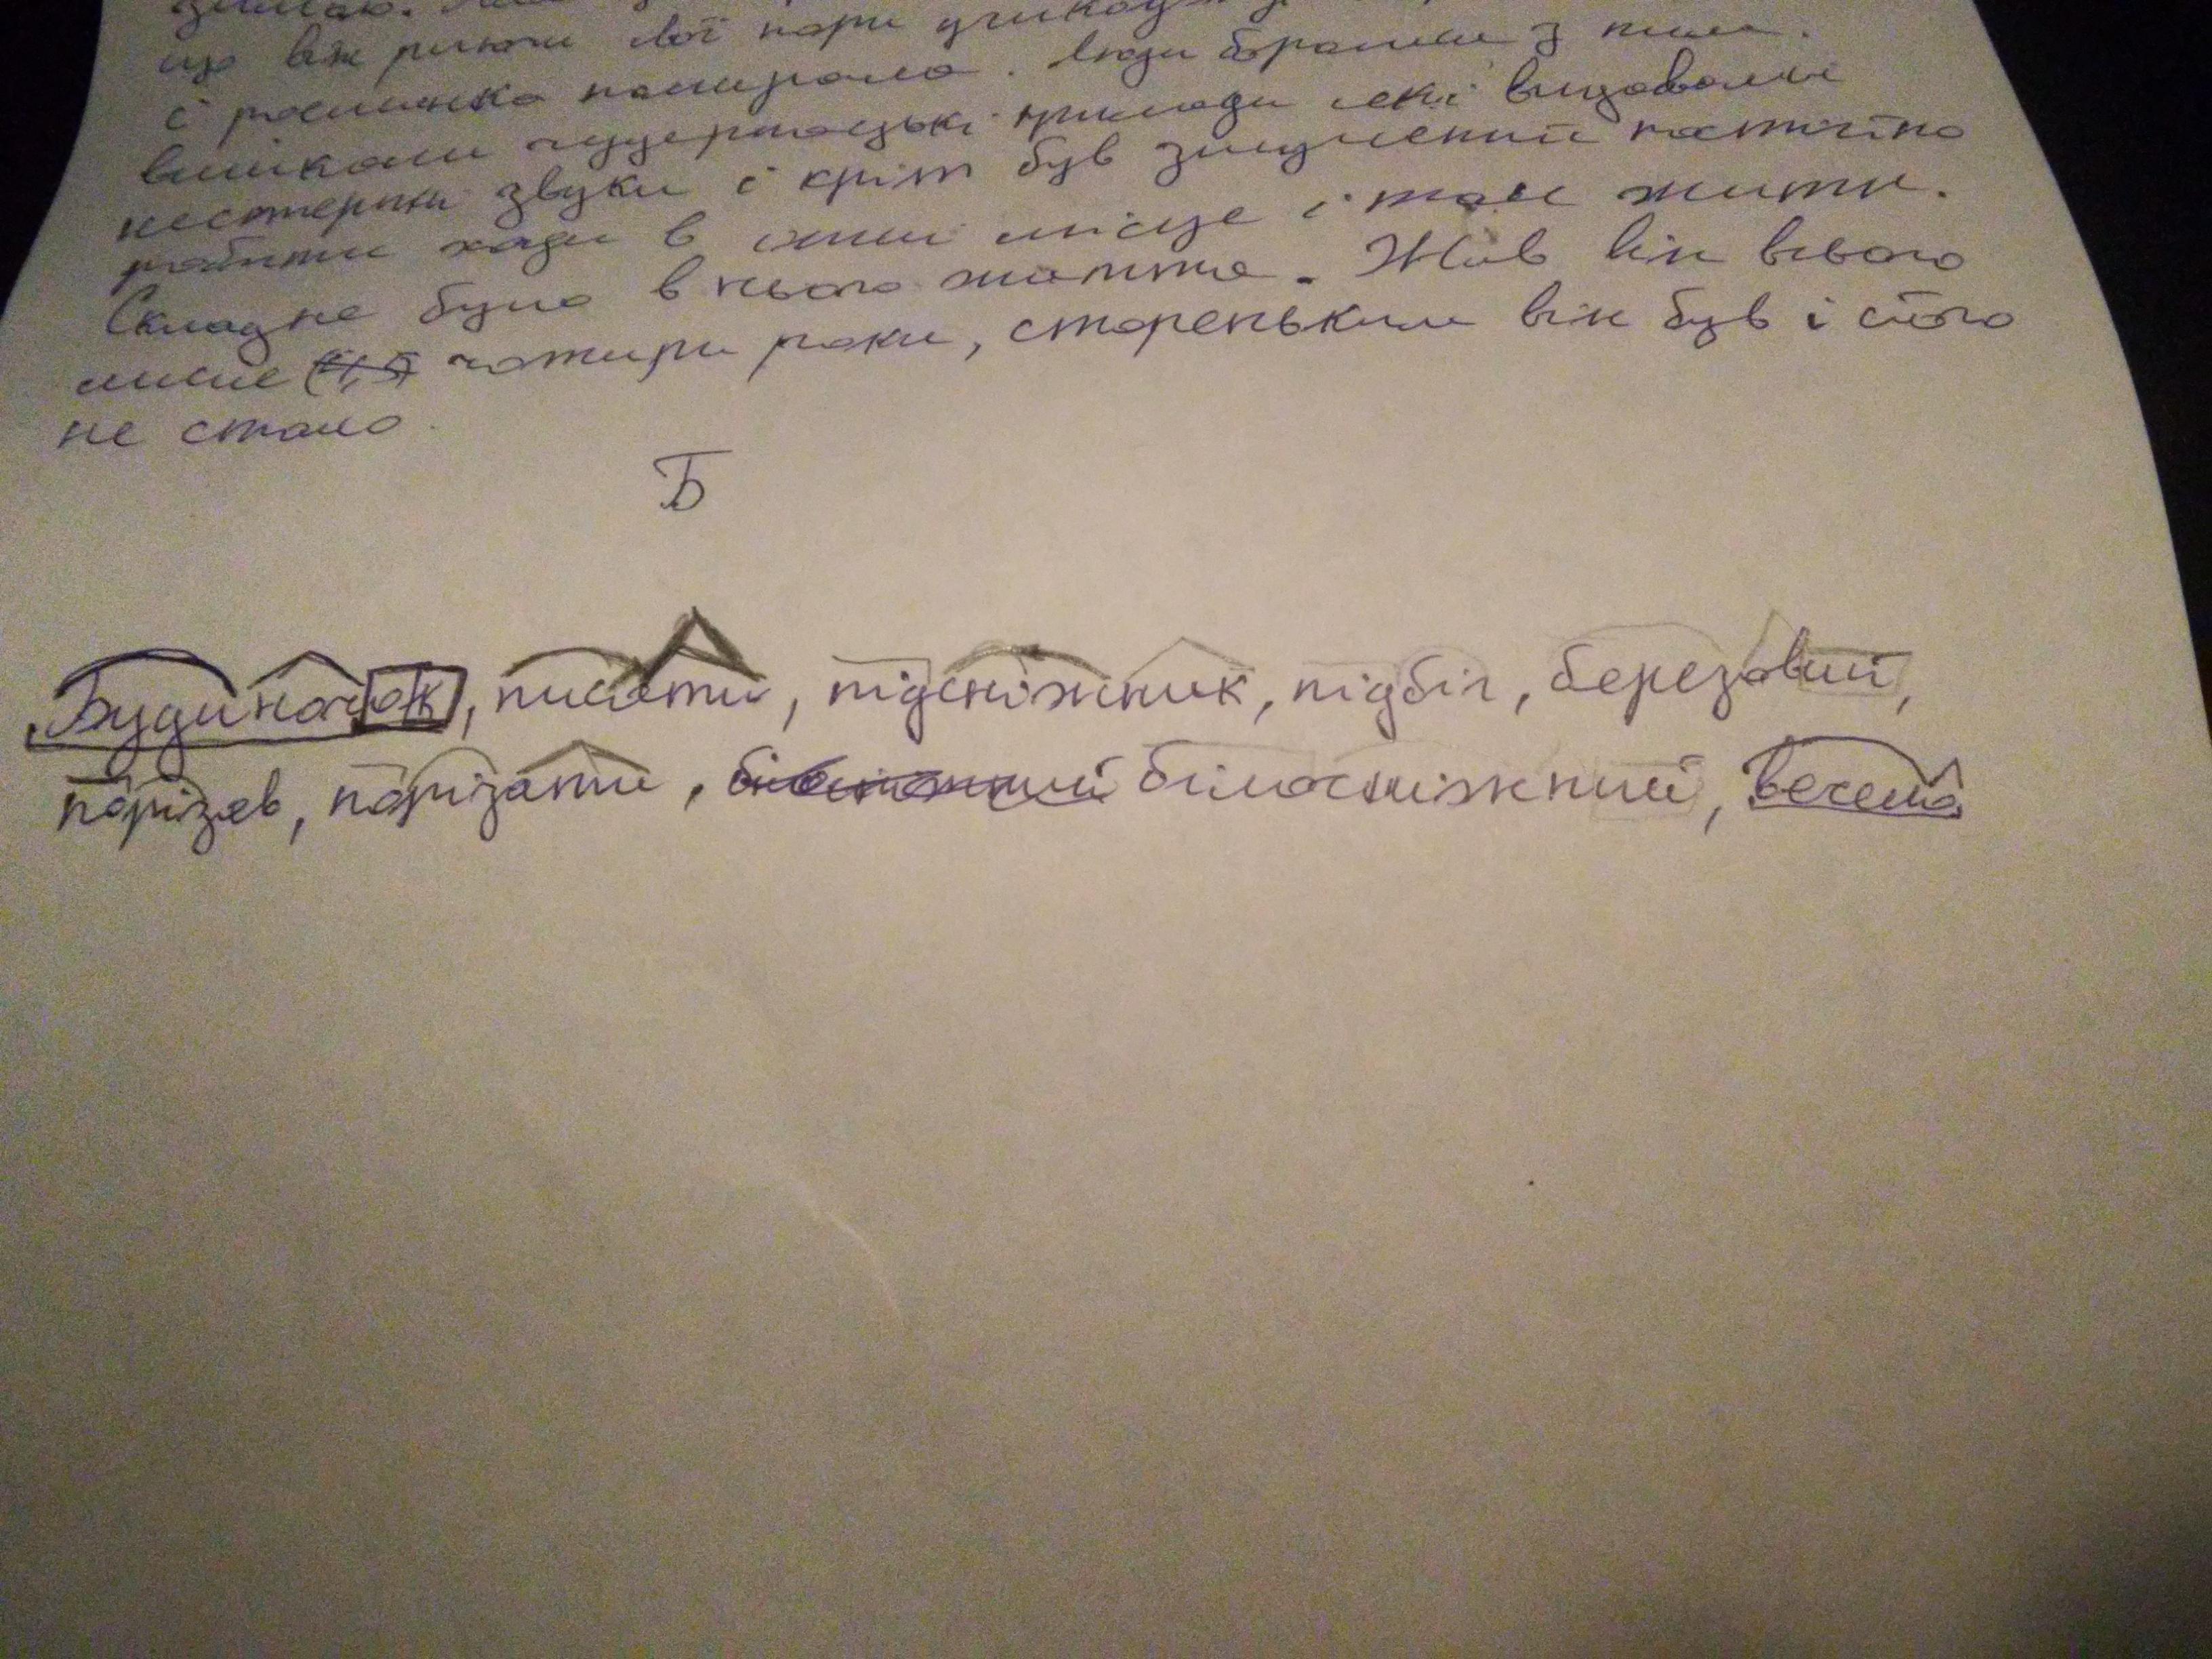 що він риючи свої нори
і рослинка помирала. Люди боролись з ним.
вмикали чудернацькі прилади які видавали
нестерпні звуки і кріт був змушений постійно
робити ходи в інші місця і там жити.
Складне було в нього життя. Жив він всього
лише чотири роки, стареньким він був і його
не стало
Б
Будиночок, писати, підсніжник, підбіг, березовий,
порізав, порізати, білосніжний, весела